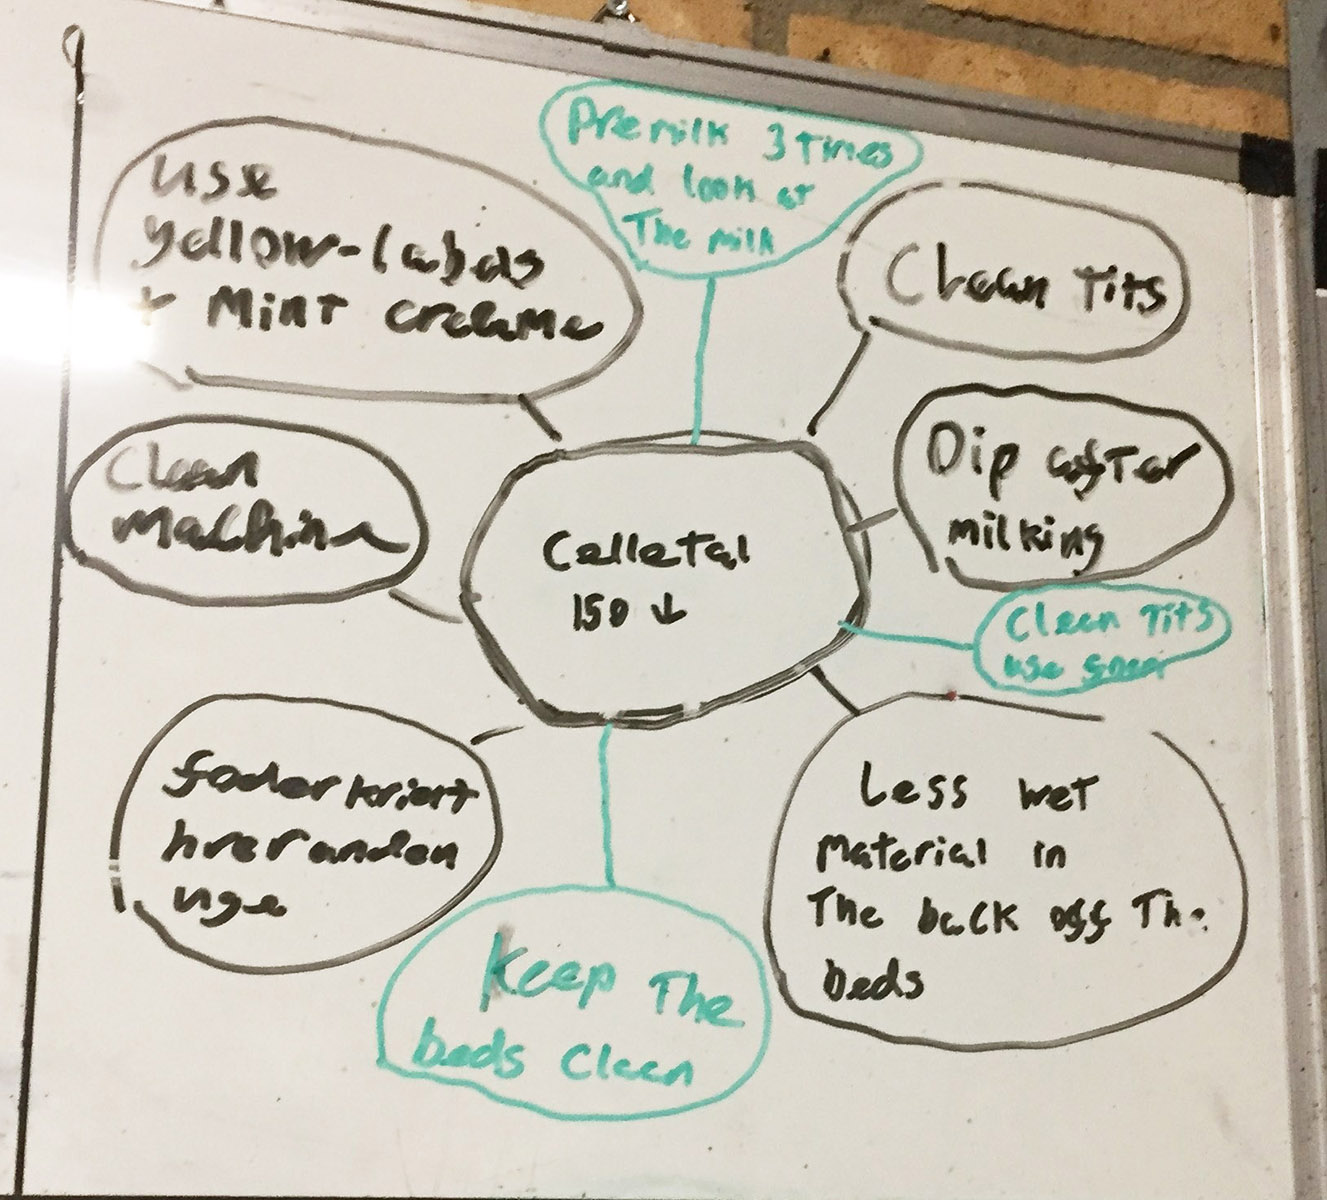 Premilk 3 times
and look at
The milk
usse
yellow-labels
+ Mint creame
Clean Tits
Clean
machine
Dip after
milking
Celletal
150 ↓
Clean Tits
use
Less wet
material in
The back off The
beds
hver anden
uge
Keep The
beds Clean